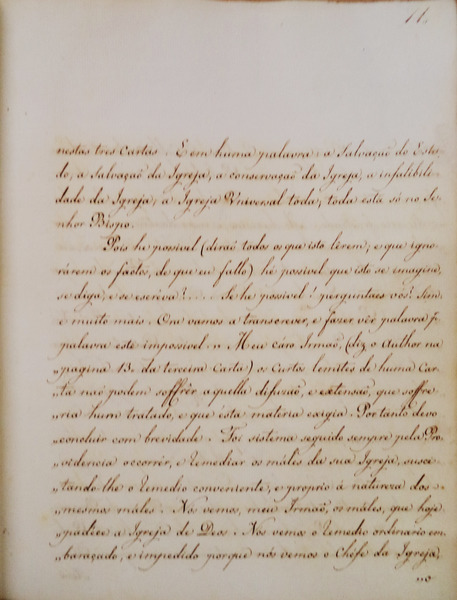 11.
nestas tres Cartas. E em huma palavra: a Salvaçaõ do Esta-
do, a Salvaçaõ da Igreja, a conservaçaõ da Igreja, a infalibili-
dade da Igreja, a Igreja Vniversal toda, toda está só no Se-
nhor Bispo.
Pois he possivel (diraõ todos os que isto lêrem, e que igno-
rárem os factos, de que eu fallo) he possivel que isto se imagine,
se diga, e se escreva?.... Se he possivel! perguntaes vós? Sim
e muito mais. Ora vamos a transcrever, e fazer vêr palavra p.
palavra este impossivel. „ Meu cáro Irmaõ, (diz o Author na
„ pagina 13. da terceira Carta) os Curtos lemites de huma Car-
„ ta naõ podem soffrêr aquella difusaõ, e extensaõ, que soffre-
„ ria hum tratado, e que esta matéria exigia. Portanto devo
„ concluir com brevidade. Foi sistema seguido sempre pela Pro-
„ videncia occorrêr, e remediar os máles da sua Igreja, susci-
„ tando-lhe o remedio conveniente, e proprio á natureza dos
„ mesmos máles. Nos vemos, meu Irmaõ, os máles, que hoje
„ padéce a Igreja de Deos. Nos vemos o remedio ordinario em-
„ baraçado, e impedido porque nós vemos o Chefe da Igreja,
„ o